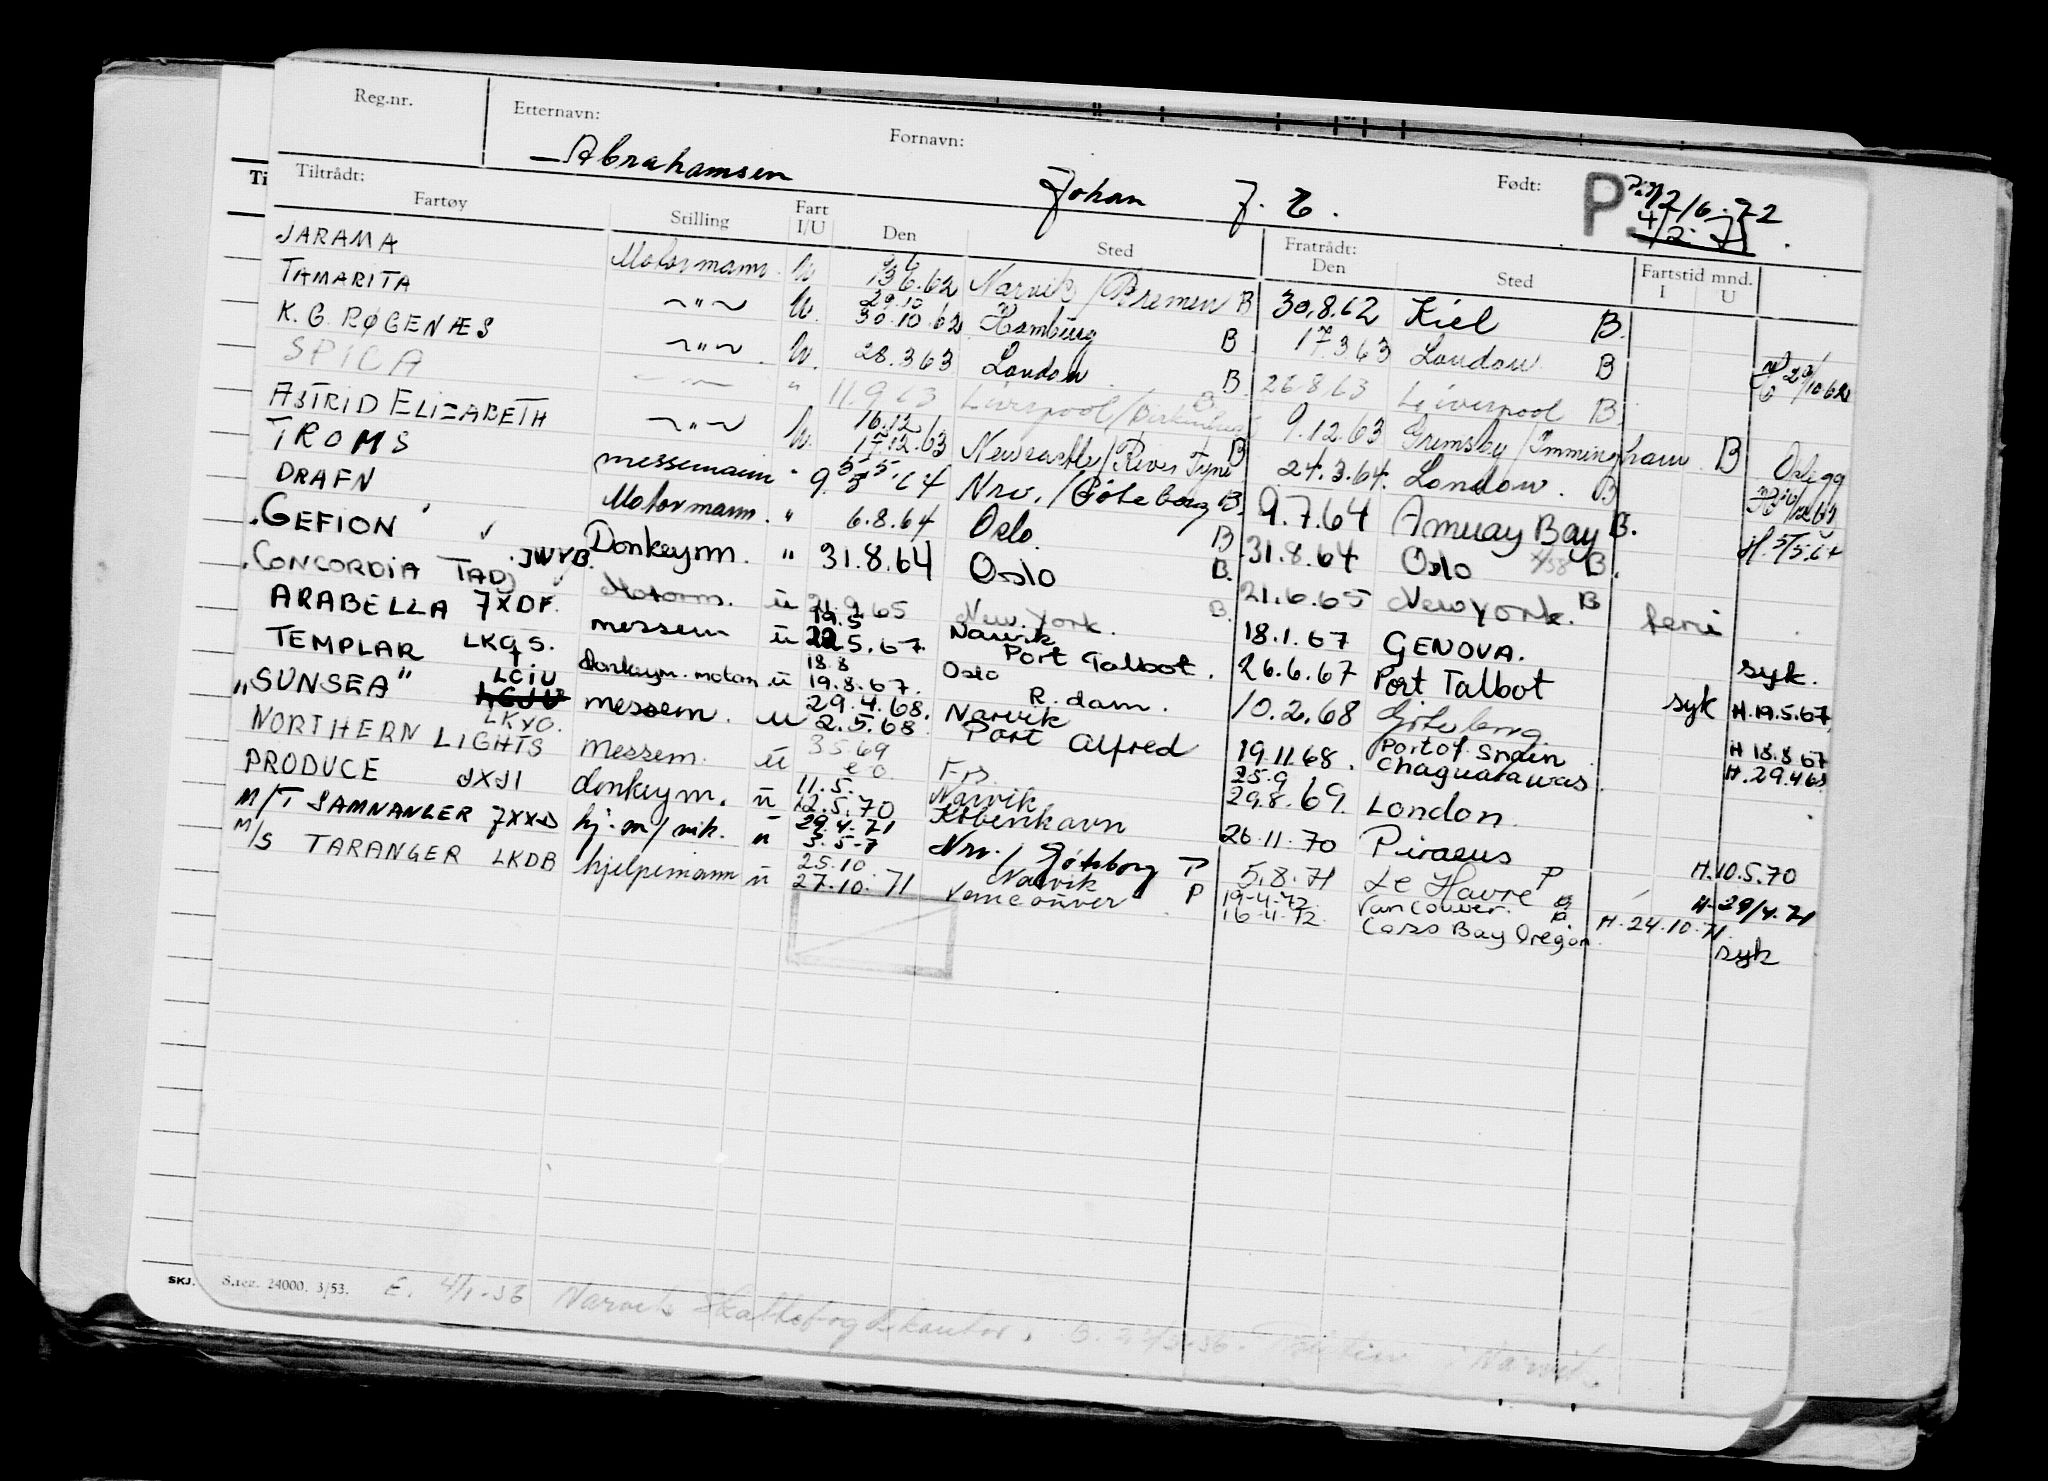 Reg.nr. Etternavn: Fornavn: Født:
Abrahamsen Johan J. E. P 12/6.72
Tiltrådt: Fratrådt: Fartstid mnd.
Fartøy Stilling Fart I/U Den Sted Den Sted I U
JARAMA Motormann U. 13.6.62 Narvik/Bremen B 30.8.62 Kiel B.
TAMARITA ~"~ U. 29.10 30.10.62 Hamburg B 17.3.63 London B 29/10 62
K.G. RØGENÆS ~"~ U. 28.3.63 London B. 26.8.63 Liverpool B.
SPICA " 11.9.63 Liverpool/Birkenhead B 9.12.63 Grimsby/Immingham B
ASTRID ELIZABETH ~"~ U. 16.12 17.12.63 Newcastle/River Tyne B 24.3.64. London. B
TROMS messemann " 5.5.64 Nrv./Göteborg B. 9.7.64 Amuay Bay B. H. 5/5.64
DRAFN Motormann. " 6.8.64 Oslo. B 31.8.64 Oslo B.
GEFION JWYB. Donkeym. " 31.8.64 Oslo B. 21.6.65 New York. B ferie
CONCORDIA TADJ Motorm. ü 21.9.65 New York. B. 18.1.67 GENOVA. syk.
ARABELLA 7XDF. messem ü 19.5 22.5.67. Narvik Port Talbot. 26.6.67 Port Talbot syk H.19.5.67
TEMPLAR LKQS. Donkeym. motorm ü 18.8 19.8.67. Oslo R.dam. 10.2.68 Göteborg H 18.8 67
"SUNSEA" LCIU messem. u 29.4.68. 2.5.68 Narvik Port Alfred 19.11.68. Port of Spain Chaguarawas. H.29.4.68
NORTHERN LIGHTS LKYO. messem. ü 3569 25.9 29.8.69. London.
PRODUCE JXJI donkeym. ü 11.5. 12.5.70 Narvik København 26.11.70 Piraeus H.10.5.70
M/T SAMNANGER 7XXD hj.m/mk. u 29.4.71 Nrv. / Göteborg P 5.8.71 Le Havre P H-29/4.71
M/S TARANGER LKDB hjelpemann ü 25.10 27.10.71 Narvik Vancouver P 19-4-72 Vancouver. 16-4-72. Coos Bay Oregon. H.24.10.71. syk
SKJ. S.reg. 24000. 3/53. E. 4/1-56 Narvik Skattefogdkontor.